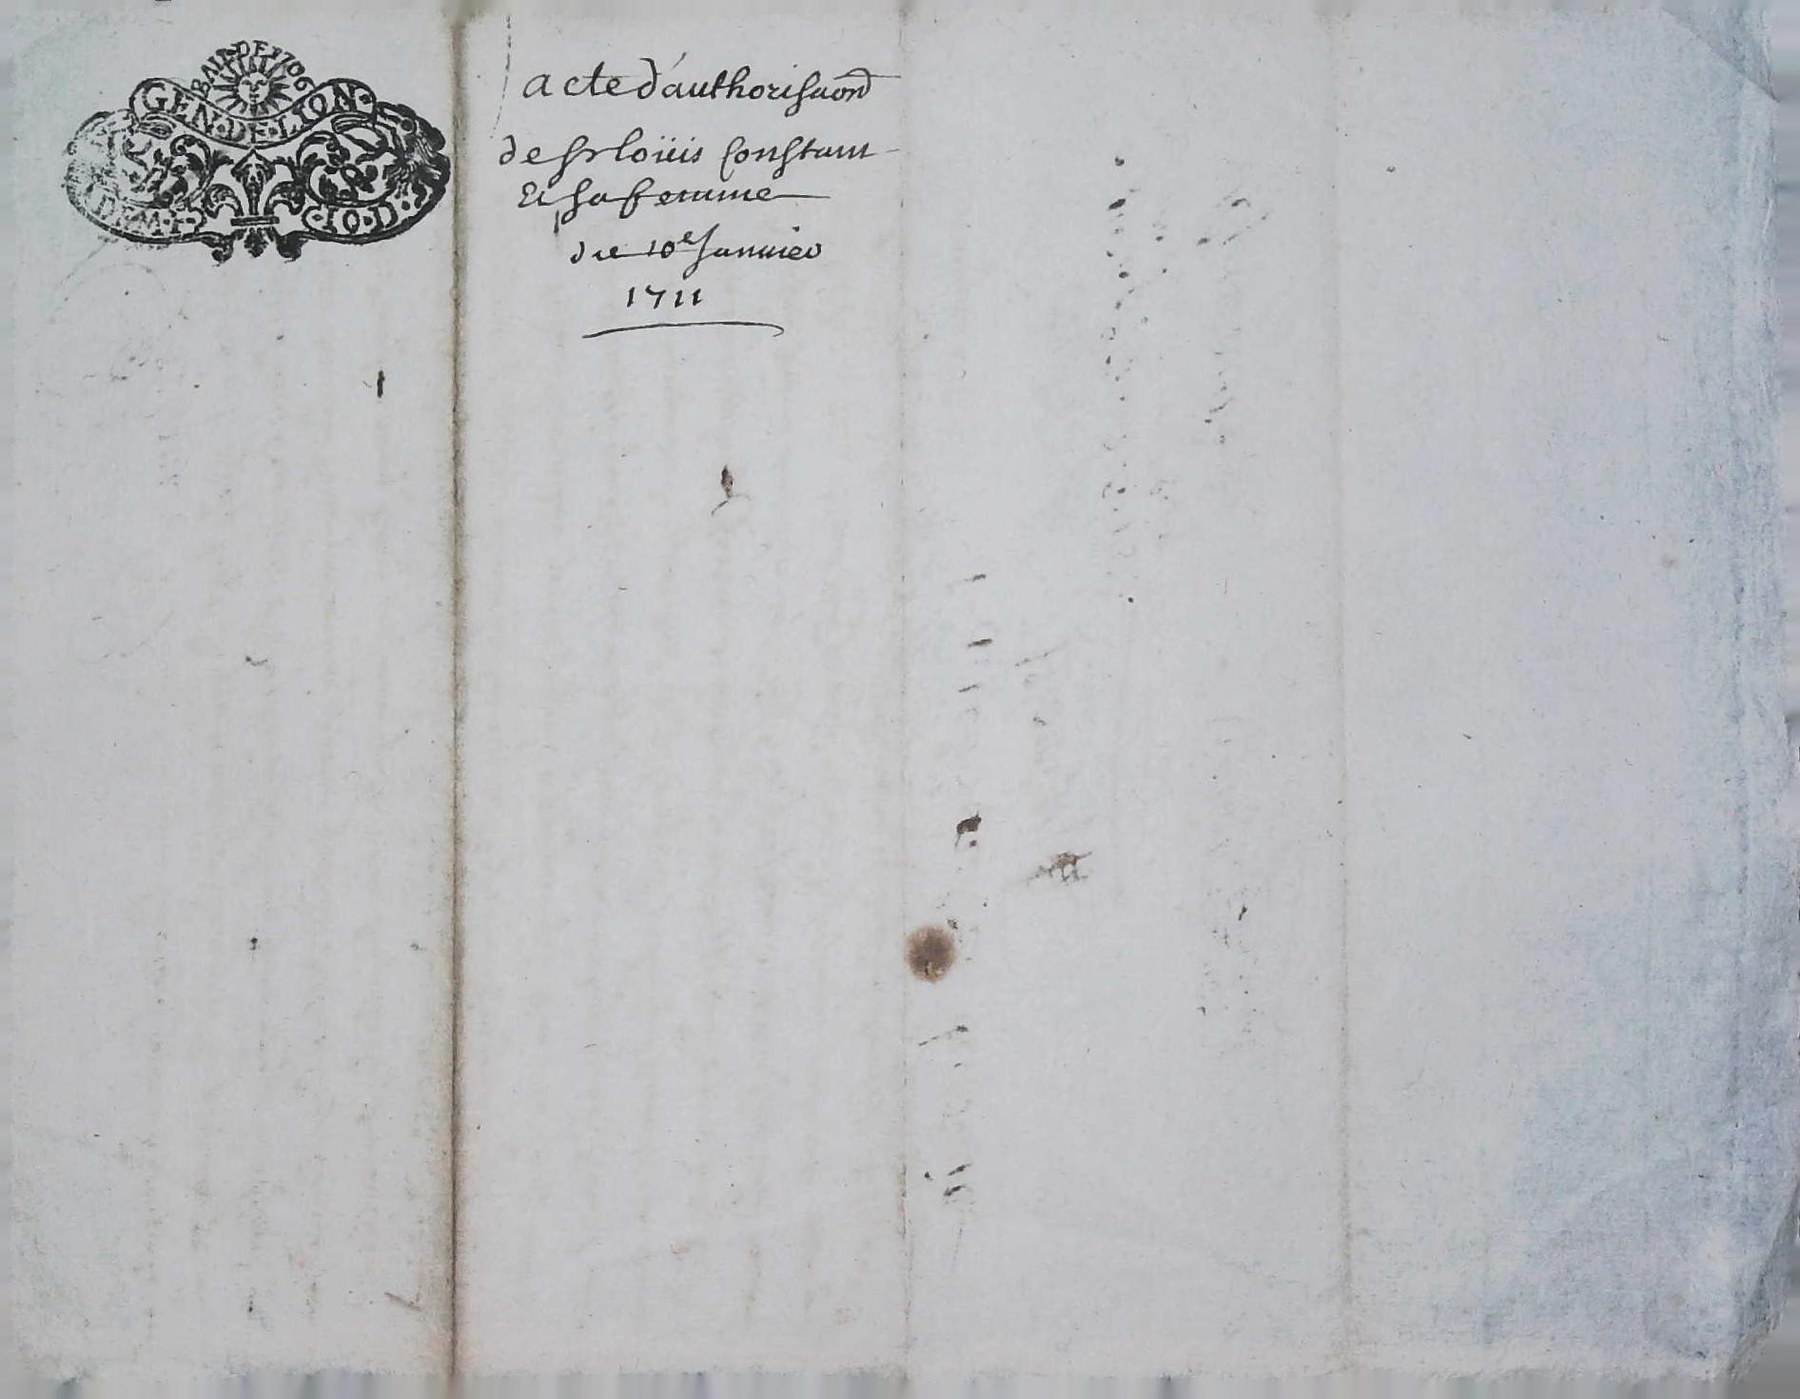 BAIL DE 1706
GEN. DE. LION.
DEMI
10. D.
acte d'authorisaon
de sr loüis Constant
Et sa femme
du 10e Janvier
1711